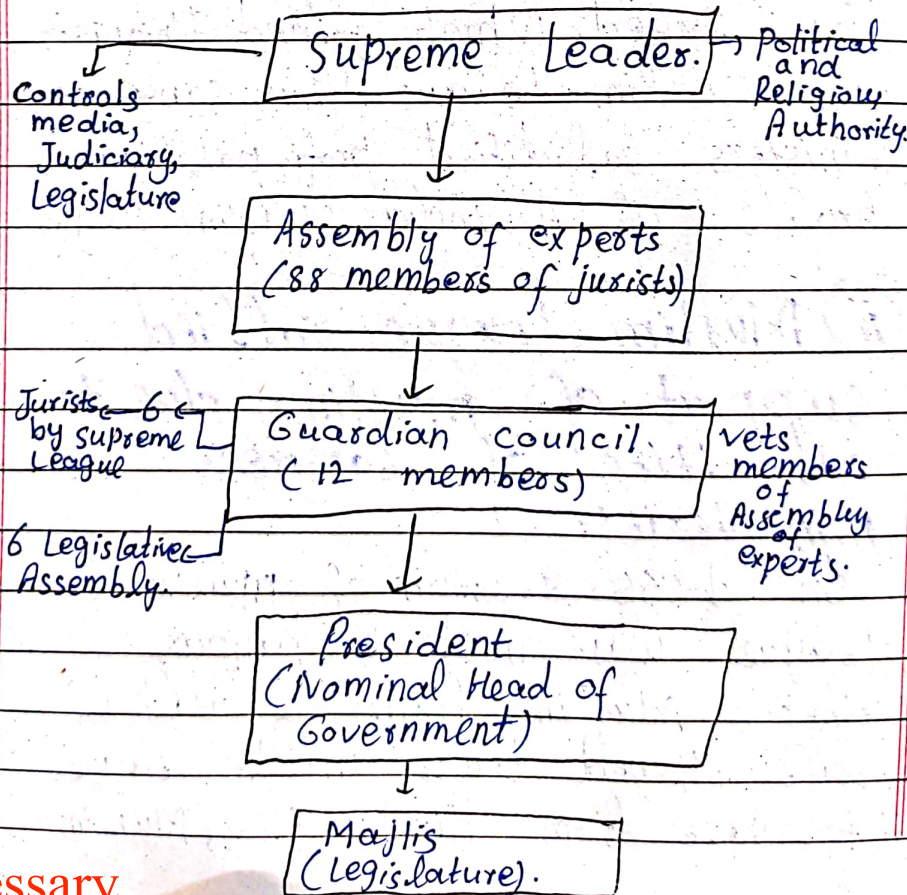 Supreme Leader.
Political
and
Religious
Authority.
Controls
media,
Judiciary,
Legislature
Assembly of experts
(88 members of jurists)
Jurists 6
by supreme
League
Guardian council.
(12 members)
vets
members
of
Assembly
of
experts.
6 Legislative
Assembly.
President
(Nominal Head of
Government)
Majlis
(Legislature).
essary